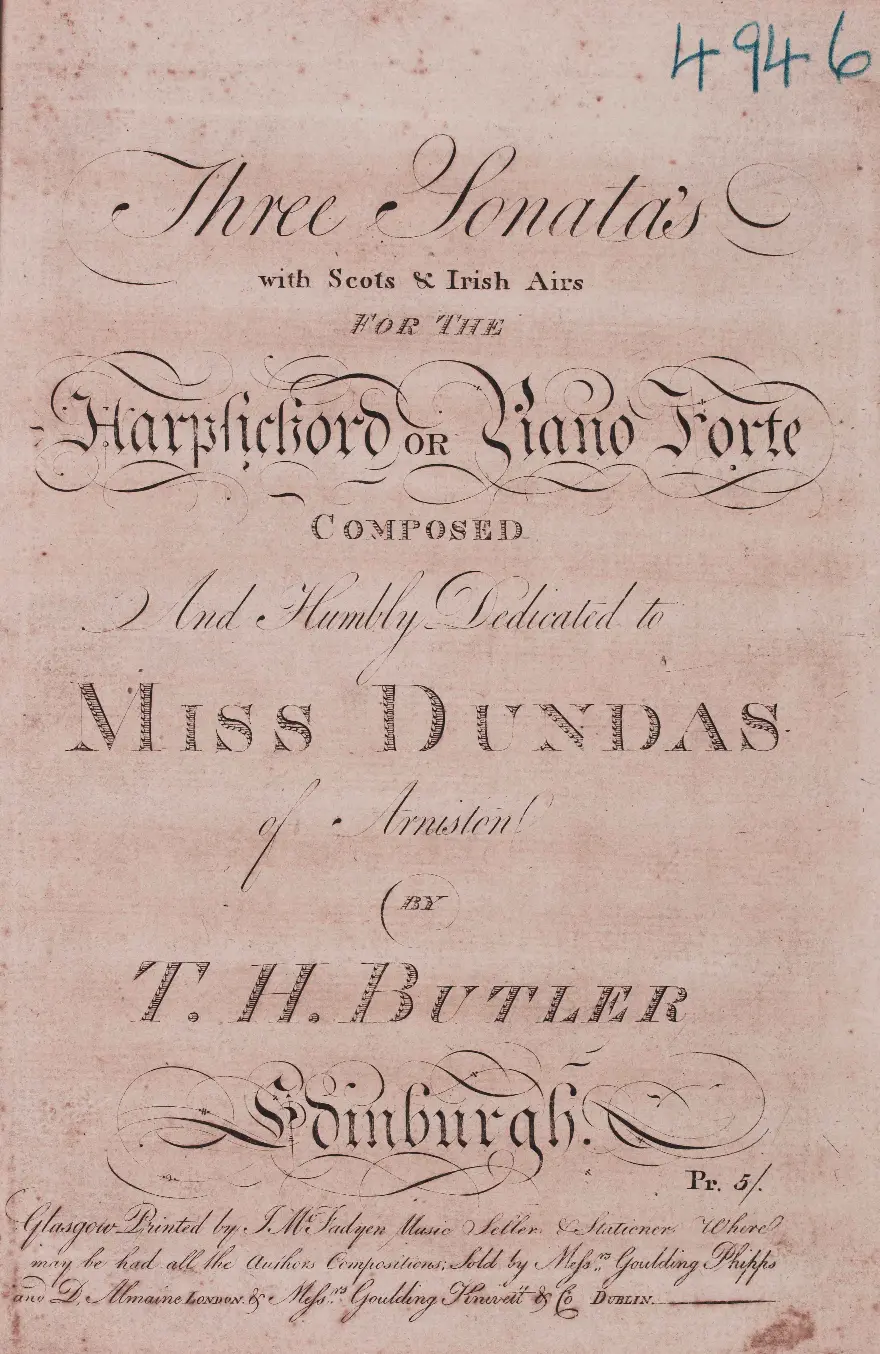 4946
Three Sonata's
with Scots & Irish Airs
FOR THE
Harpsichord OR Piano Forte
COMPOSED
And Humbly Dedicated to
MISS DUNDAS
of Arniston
BY
T. H. BUTLER
Edinburgh.
Pr. 5/.
Glasgow Printed by J. McFadyen Music Seller & Stationer Where
may be had all the Authors Compositions; Sold by Messrs. Goulding Phipps
and D'Almaine LONDON. & Messrs. Goulding Knevett & Co DUBLIN.